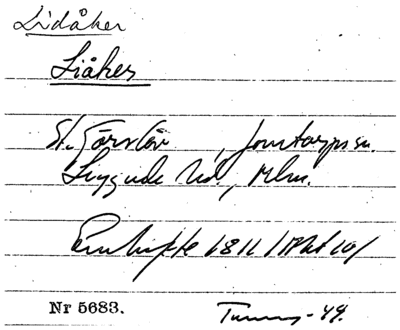 Lidåker
Liåker
St. Görslöv, Jonstorps sn.
Luggude hd., Mlm.
Enskifte 1811 (Akt 10)
Nr 5683. -49.